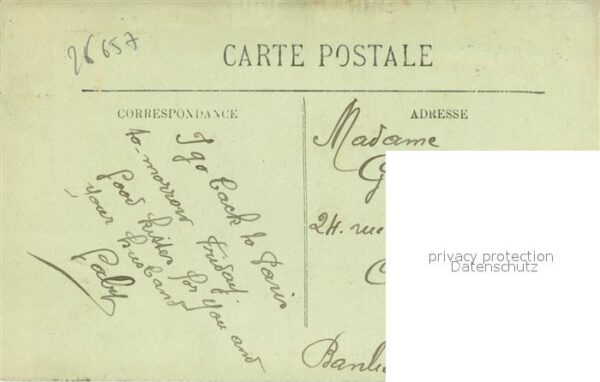 26657
CARTE POSTALE
CORRESPONDANCE
I go back to Paris
to-morrow Friday.
Good kisses for you and
your husband
Gaby
ADRESSE
Madame
G
24. rue
C
Banli
privacy protection
Datenschutz